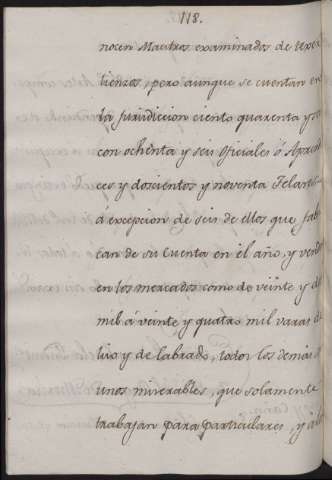 118.
nocen Maestros examinados de texer
lienzos, pero aunque se cuentan en
la Jurisdicion ciento quarenta y
con ochenta y seis oficiales ó Aprendi
ces y doscientos y noventa Telares
á excepcion de seis de ellos que fabri
can de su Cuenta en el año, y vend
en los mercados como de veinte y d
mil á veinte y quatro mil varas de
liso y de labrado, todos los demás
unos miserables, que solamente
trabajan para particulares, y á